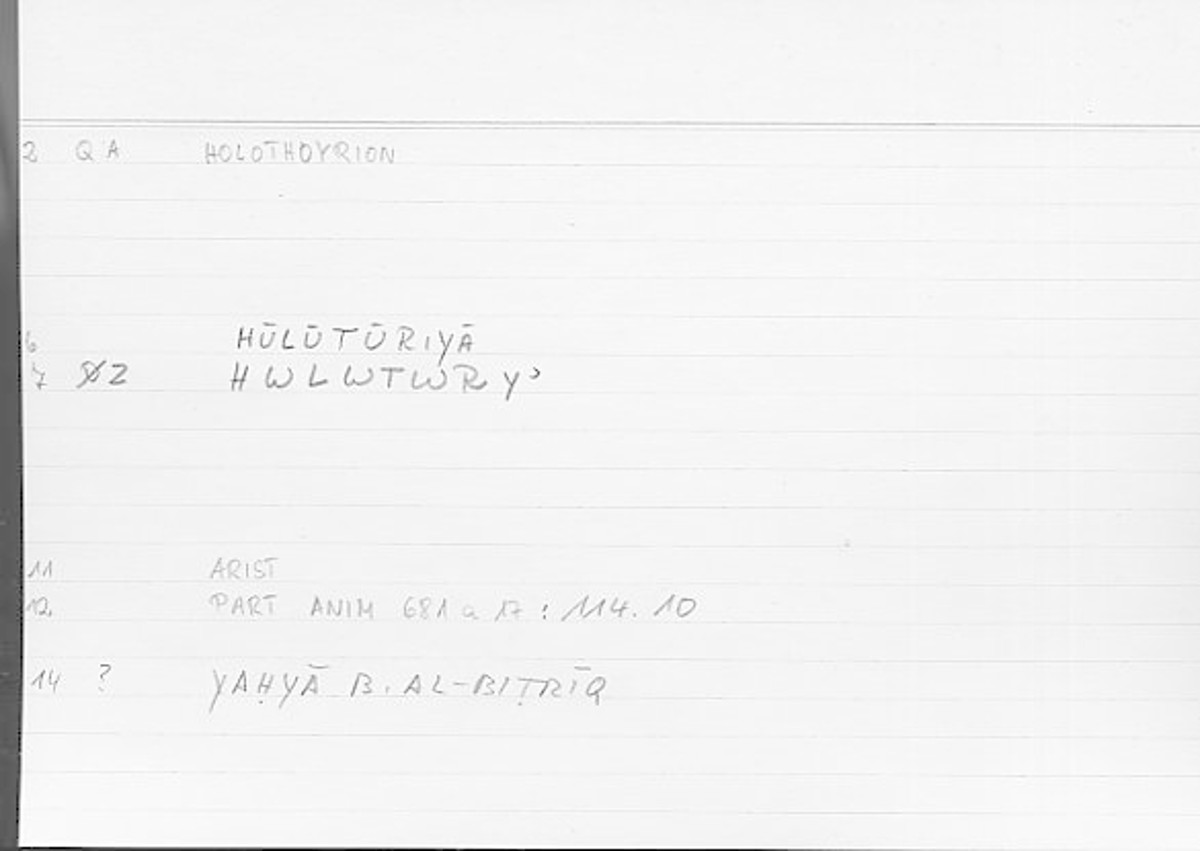 2 QA HOLOTHOYRION
6 HŪLŪTŪRIYĀ
7 Z HWLWTWRYʾ
11 ARIST
12 PART ANIM 681 a 17 : 114. 10
14 ? YAḤYĀ B. AL-BIṬRĪQ